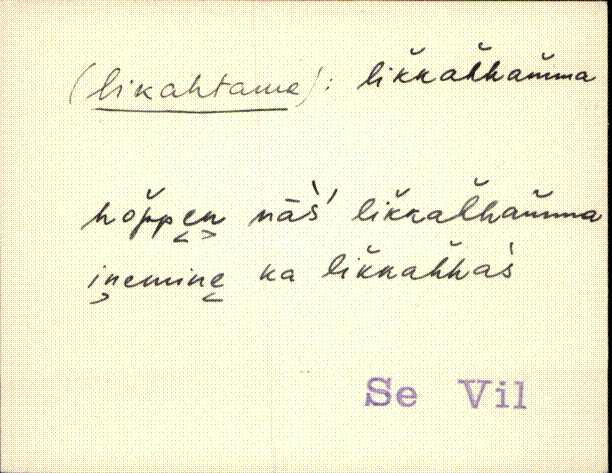 (likahtame): lik̆kah̆ham̆ma
hop̆pen nā̀s' lik̆kah̆ham̆ma
inemine ka lik̆kah̆hàs
Se Vil